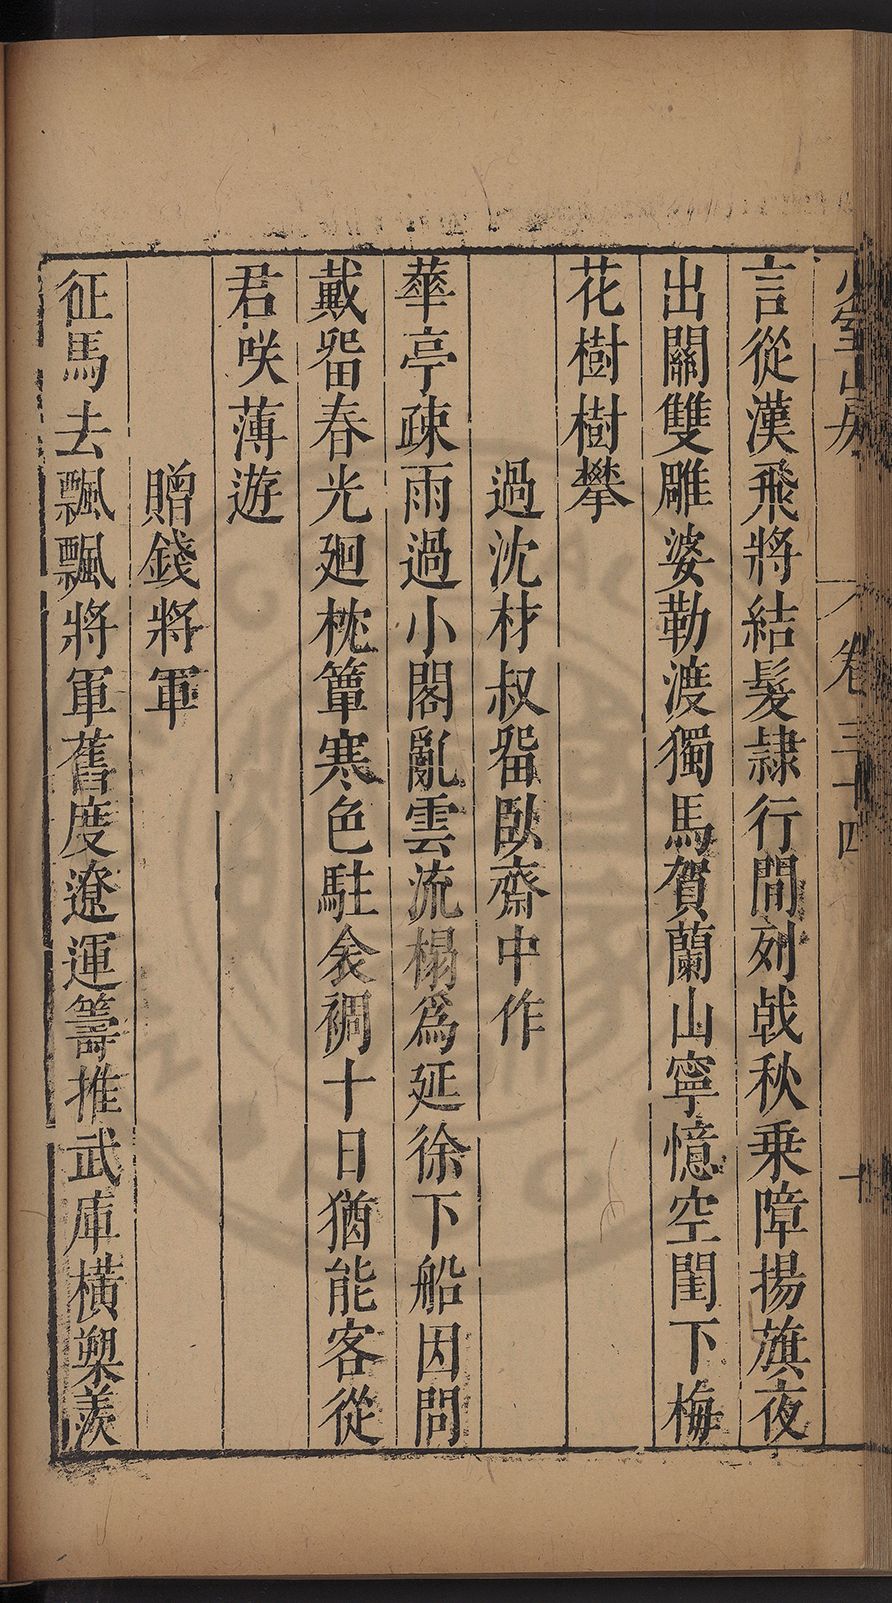 少室山房 卷三十四 十
言從漢飛將結髮隷行間列戟秋乗障揚旗夜
出關雙雕婆勒渡獨馬賀蘭山寧憶空閨下梅
花樹樹攀
過沈材叔畱臥齋中作
華亭疎雨過小閣亂雲流榻爲延徐下船因問
戴畱春光廻枕簟寒色駐衾裯十日猶能客從
君咲薄遊
贈錢將軍
征馬去飄飄將軍舊度遼運籌推武庫橫槊羨